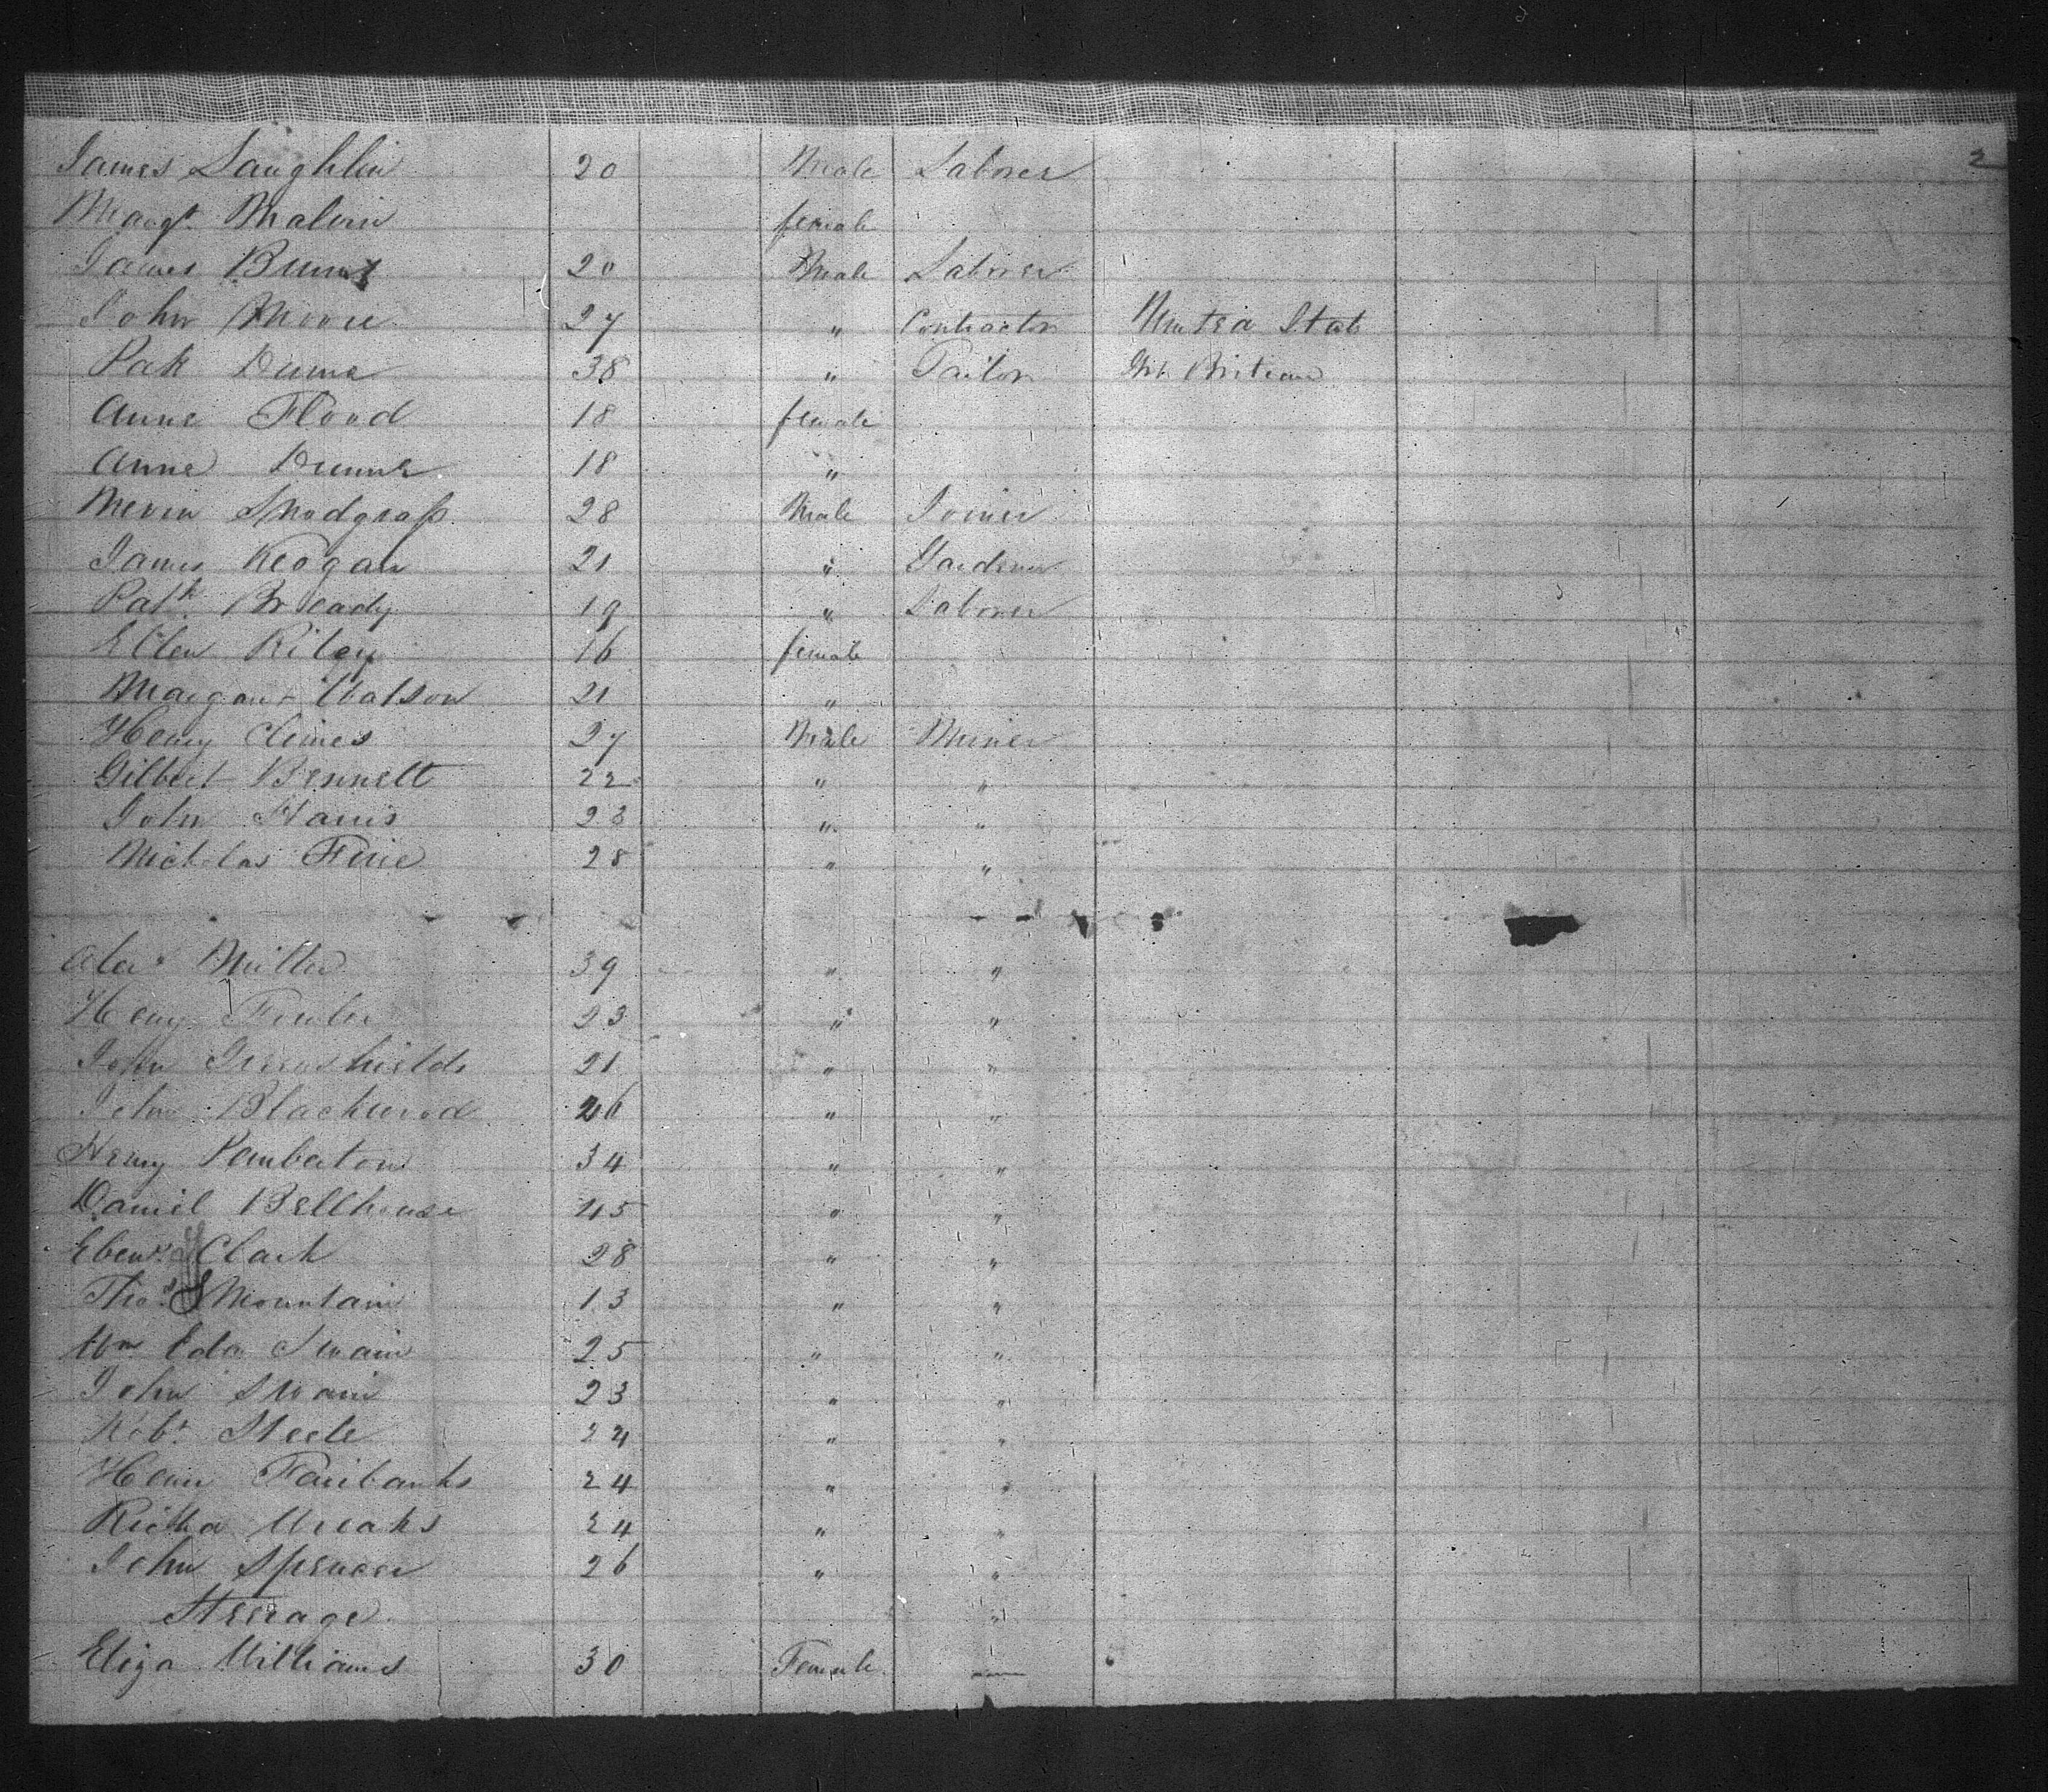 2
James Laughlin 20 Male Laborer
Margt. Malvin female
James Burns 20 Male Laborer
John Moore 27 " Contractor United State
Pak Dunne 38 " Tailor Grt. Britian
Anne Flood 18 female
Anne Dunne 18 "
Mervin Snodgrass 28 Male Joiner
James Keogan 21 " Gardener
Patk. Bready 19 " Laborer
Ellen Riley 16 female
Margaret Watson 21 "
Henry Climes 27 Male Miner
Gilbert Bennett 22 " "
John Harris 23 " "
Nicholas 28 " "
Alexr Miller 39 " "
Henry Fowler 23 " "
John Greenshields 21 " "
John Blackwood 26 " "
Henry Pemberton 34 " "
Daniel Bellhouse 45 " "
Ebenr. Clark 28 " "
Thos. Mountain 13 " "
Wm Edw Swain 25 " "
John Swain 23 " "
Robt Steele 24 " "
Henry Fairbanks 24 " "
Richd 24 " "
John Spencer 26 " "
Steerage "
Eliza Williams 30 Female —